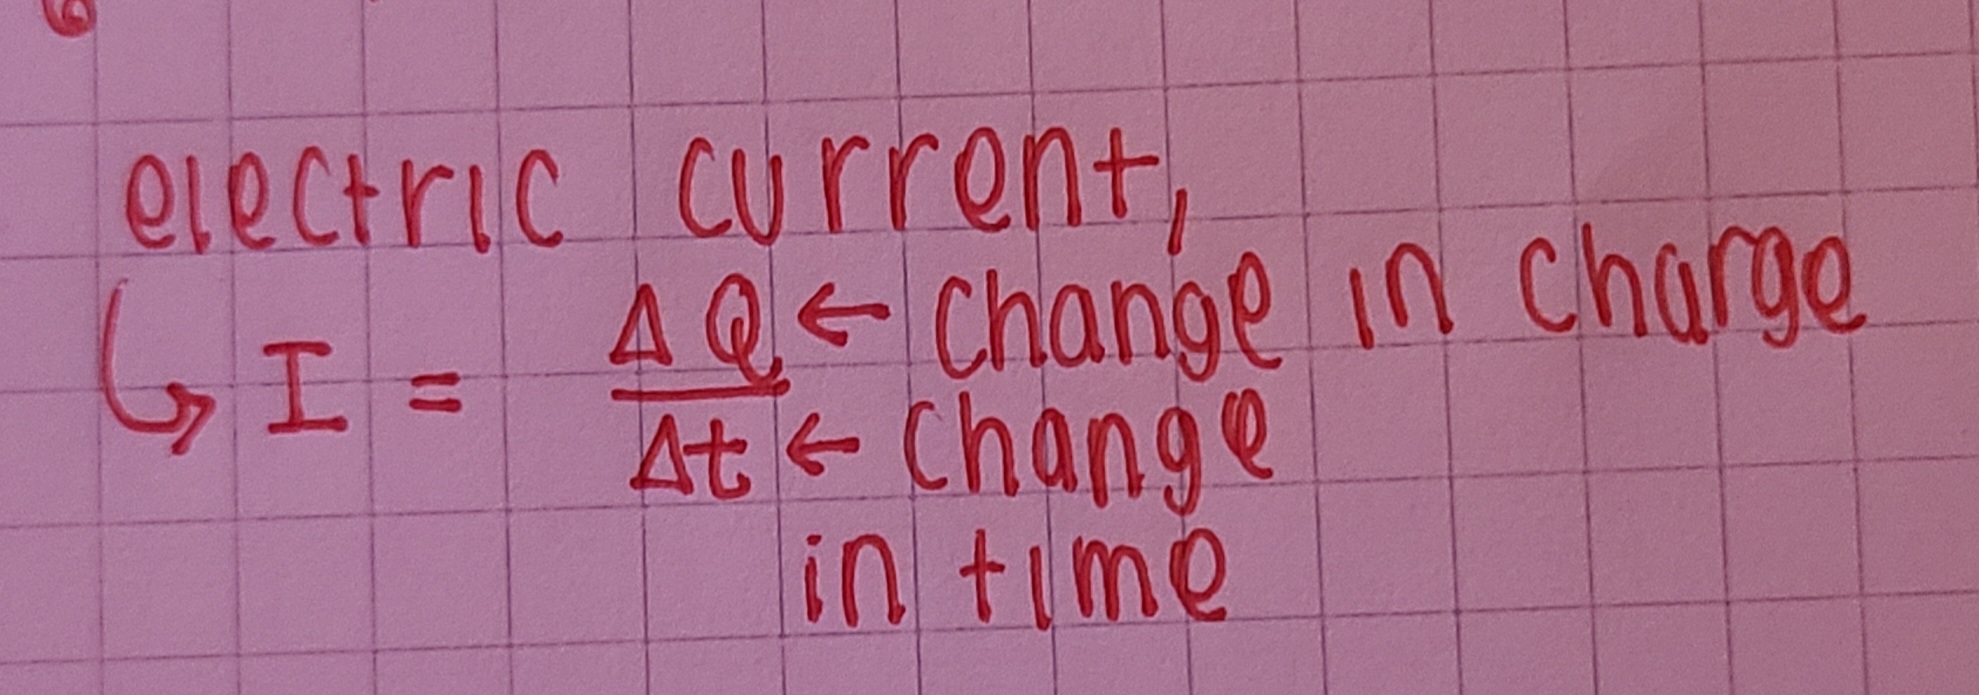 electric current,
↳ I = ΔQ ← change in charge
Δt ← change
in time